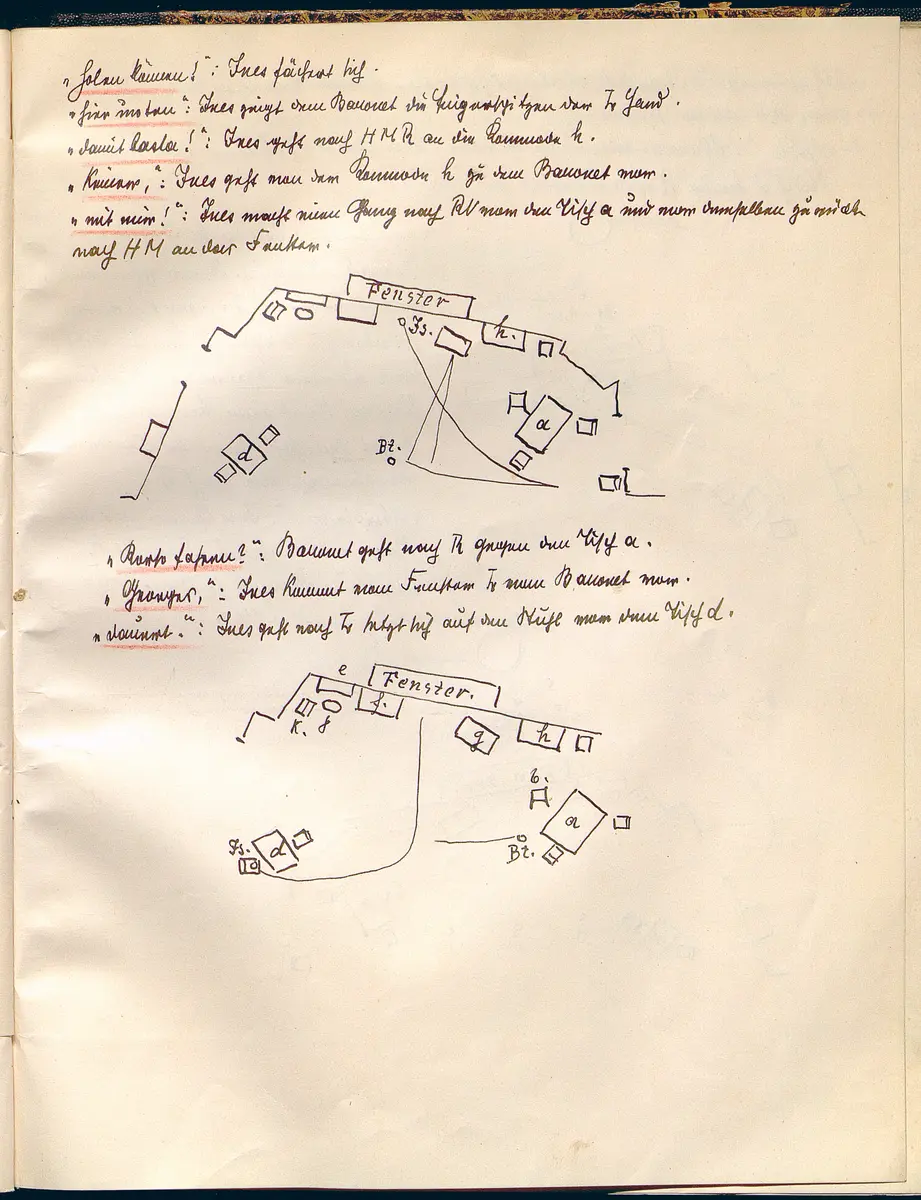 „holen können!“: Ines fächert sich.
„hier unten“: Ines zeigt dem Baronet die Fingerspitzen der L Hand.
„damit basta!“: Ines geht nach HMR an die Kommode h.
„Keiner,“: Ines geht von der Kommode h zu dem Baronet vor.
„mit mir!“: Ines macht einen Gang nach RV vor den Tisch a und vor demselben zurück
nach HM an das Fenster.
Fenster
Is.
h.
a
d
Bt.
„Korso fahren?“: Baronet geht nach R gegen den Tisch a.
„Georges,“: Ines kommt vom Fenster L vom Baronet vor.
„dauert.“: Ines geht nach L setzt sich auf den Stuhl vor dem Tisch d.
e
Fenster.
f.
K. g
g
h
b.
a
Is.
d
Bt.